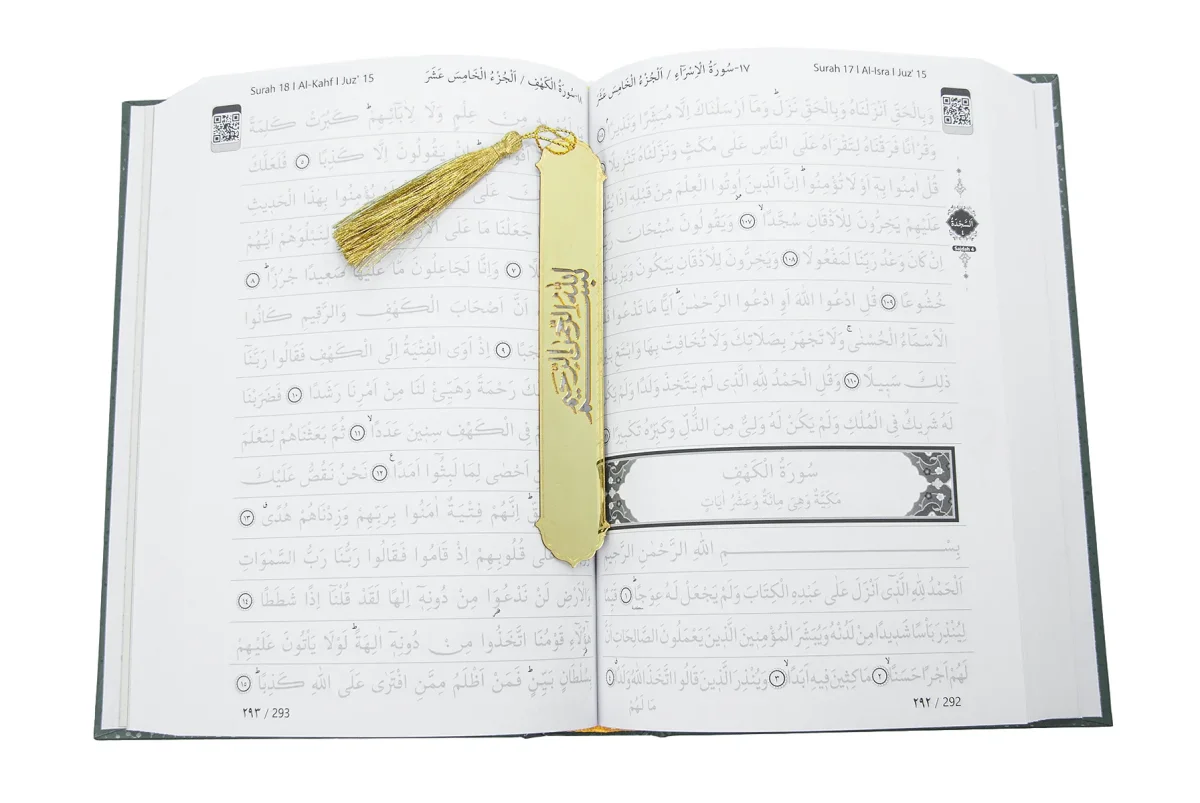 ١٧-سُورَةُ الْاِسْرَاۤءِ / اَلْجُزْءُ الْخَامِسَ عَشَرَ Surah 17 | Al-Isra | Juz' 15
وَبِالْحَقِّ اَنْزَلْنَاهُ وَبِالْحَقِّ نَزَلَ وَمَا اَرْسَلْنَاكَ اِلَّا مُبَشِّرًا وَنَذِيرًا
وَقُرْاٰنًا فَرَقْنَاهُ لِتَقْرَاَهُ عَلَى النَّاسِ عَلٰى مُكْثٍ وَنَزَّلْنَاهُ تَنْزِيلًا
قُلْ اٰمِنُوا بِهٖٓ اَوْ لَا تُؤْمِنُوا اِنَّ الَّذِينَ اُوتُوا الْعِلْمَ مِنْ قَبْلِهٖٓ اِذَا
عَلَيْهِمْ يَخِرُّونَ لِلْاَذْقَانِ سُجَّدًا ١٠٧ وَيَقُولُونَ سُبْحَانَ
اِنْ كَانَ وَعْدُ رَبِّنَا لَمَفْعُولًا ١٠٨ وَيَخِرُّونَ لِلْاَذْقَانِ يَبْكُونَ وَيَزِيدُهُمْ
خُشُوعًا ١٠٩ قُلِ ادْعُوا اللّٰهَ اَوِ ادْعُوا الرَّحْمٰنَ اَيًّا مَا تَدْعُوا
الْاَسْمَاۤءُ الْحُسْنٰى وَلَا تَجْهَرْ بِصَلَاتِكَ وَلَا تُخَافِتْ بِهَا وَابْتَغِ
ذٰلِكَ سَبِيلًا ١١٠ وَقُلِ الْحَمْدُ لِلّٰهِ الَّذٖى لَمْ يَتَّخِذْ وَلَدًا وَلَمْ يَكُنْ
لَهُ شَرٖيكٌ فِى الْمُلْكِ وَلَمْ يَكُنْ لَهُ وَلِىٌّ مِنَ الذُّلِّ وَكَبِّرْهُ تَكْبِيرًا
السَّجْدَةُ
Sajdah 4
سُورَةُ الْكَهْفِ
مَكِّيَّةٌ وَهِىَ مِائَةٌ وَعَشْرُ اٰيَاتٍ
بِسْمِ اللّٰهِ الرَّحْمٰنِ الرَّحِيمِ
اَلْحَمْدُ لِلّٰهِ الَّذٖٓى اَنْزَلَ عَلٰى عَبْدِهِ الْكِتَابَ وَلَمْ يَجْعَلْ لَهُ عِوَجًا ١ قَيِّمًا
لِيُنْذِرَ بَاْسًا شَدِيدًا مِنْ لَدُنْهُ وَيُبَشِّرَ الْمُؤْمِنِينَ الَّذِينَ يَعْمَلُونَ الصَّالِحَاتِ اَنَّ
لَهُمْ اَجْرًا حَسَنًا ٢ مَاكِثِينَ فِيهِ اَبَدًا ٣ وَيُنْذِرَ الَّذِينَ قَالُوا اتَّخَذَ اللّٰهُ وَلَدًا ٤
مَا لَهُمْ
٢٩٢ / 292
١٨-سُورَةُ الْكَهْفِ / اَلْجُزْءُ الْخَامِسَ عَشَرَ Surah 18 | Al-Kahf | Juz' 15
مِنْ عِلْمٍ وَلَا لِاٰبَاۤئِهِمْ كَبُرَتْ كَلِمَةً
يَقُولُونَ اِلَّا كَذِبًا ٥ فَلَعَلَّكَ
عَلٰٓى يُؤْمِنُوا بِهٰذَا الْحَدِيثِ
جَعَلْنَا مَا عَلَى الْاَرْضِ لِنَبْلُوَهُمْ اَيُّهُمْ
٧ وَاِنَّا لَجَاعِلُونَ مَا عَلَيْهَا صَعِيدًا جُرُزًا ٨
اَنَّ اَصْحَابَ الْكَهْفِ وَالرَّقِيمِ كَانُوا
٩ اِذْ اَوَى الْفِتْيَةُ اِلَى الْكَهْفِ فَقَالُوا رَبَّنَا
رَحْمَةً وَهَيِّئْ لَنَا مِنْ اَمْرِنَا رَشَدًا ١٠ فَضَرَبْنَا
فِى الْكَهْفِ سِنِينَ عَدَدًا ١١ ثُمَّ بَعَثْنَاهُمْ لِنَعْلَمَ
اَحْصٰى لِمَا لَبِثُوٓا اَمَدًا ١٢ نَحْنُ نَقُصُّ عَلَيْكَ
اِنَّهُمْ فِتْيَةٌ اٰمَنُوا بِرَبِّهِمْ وَزِدْنَاهُمْ هُدًى ١٣
عَلٰى قُلُوبِهِمْ اِذْ قَامُوا فَقَالُوا رَبُّنَا رَبُّ السَّمٰوَاتِ
وَالْاَرْضِ لَنْ نَدْعُوَا مِنْ دُونِهٖٓ اِلٰهًا لَقَدْ قُلْنَٓا اِذًا شَطَطًا ١٤
هٰٓؤُلَاۤءِ قَوْمُنَا اتَّخَذُوا مِنْ دُونِهٖٓ اٰلِهَةً لَوْلَا يَاْتُونَ عَلَيْهِمْ
بِسُلْطَانٍ بَيِّنٍ فَمَنْ اَظْلَمُ مِمَّنِ افْتَرٰى عَلَى اللّٰهِ كَذِبًا ١٥
٢٩٣ / 293
بسم الله الرحمن الرحيم